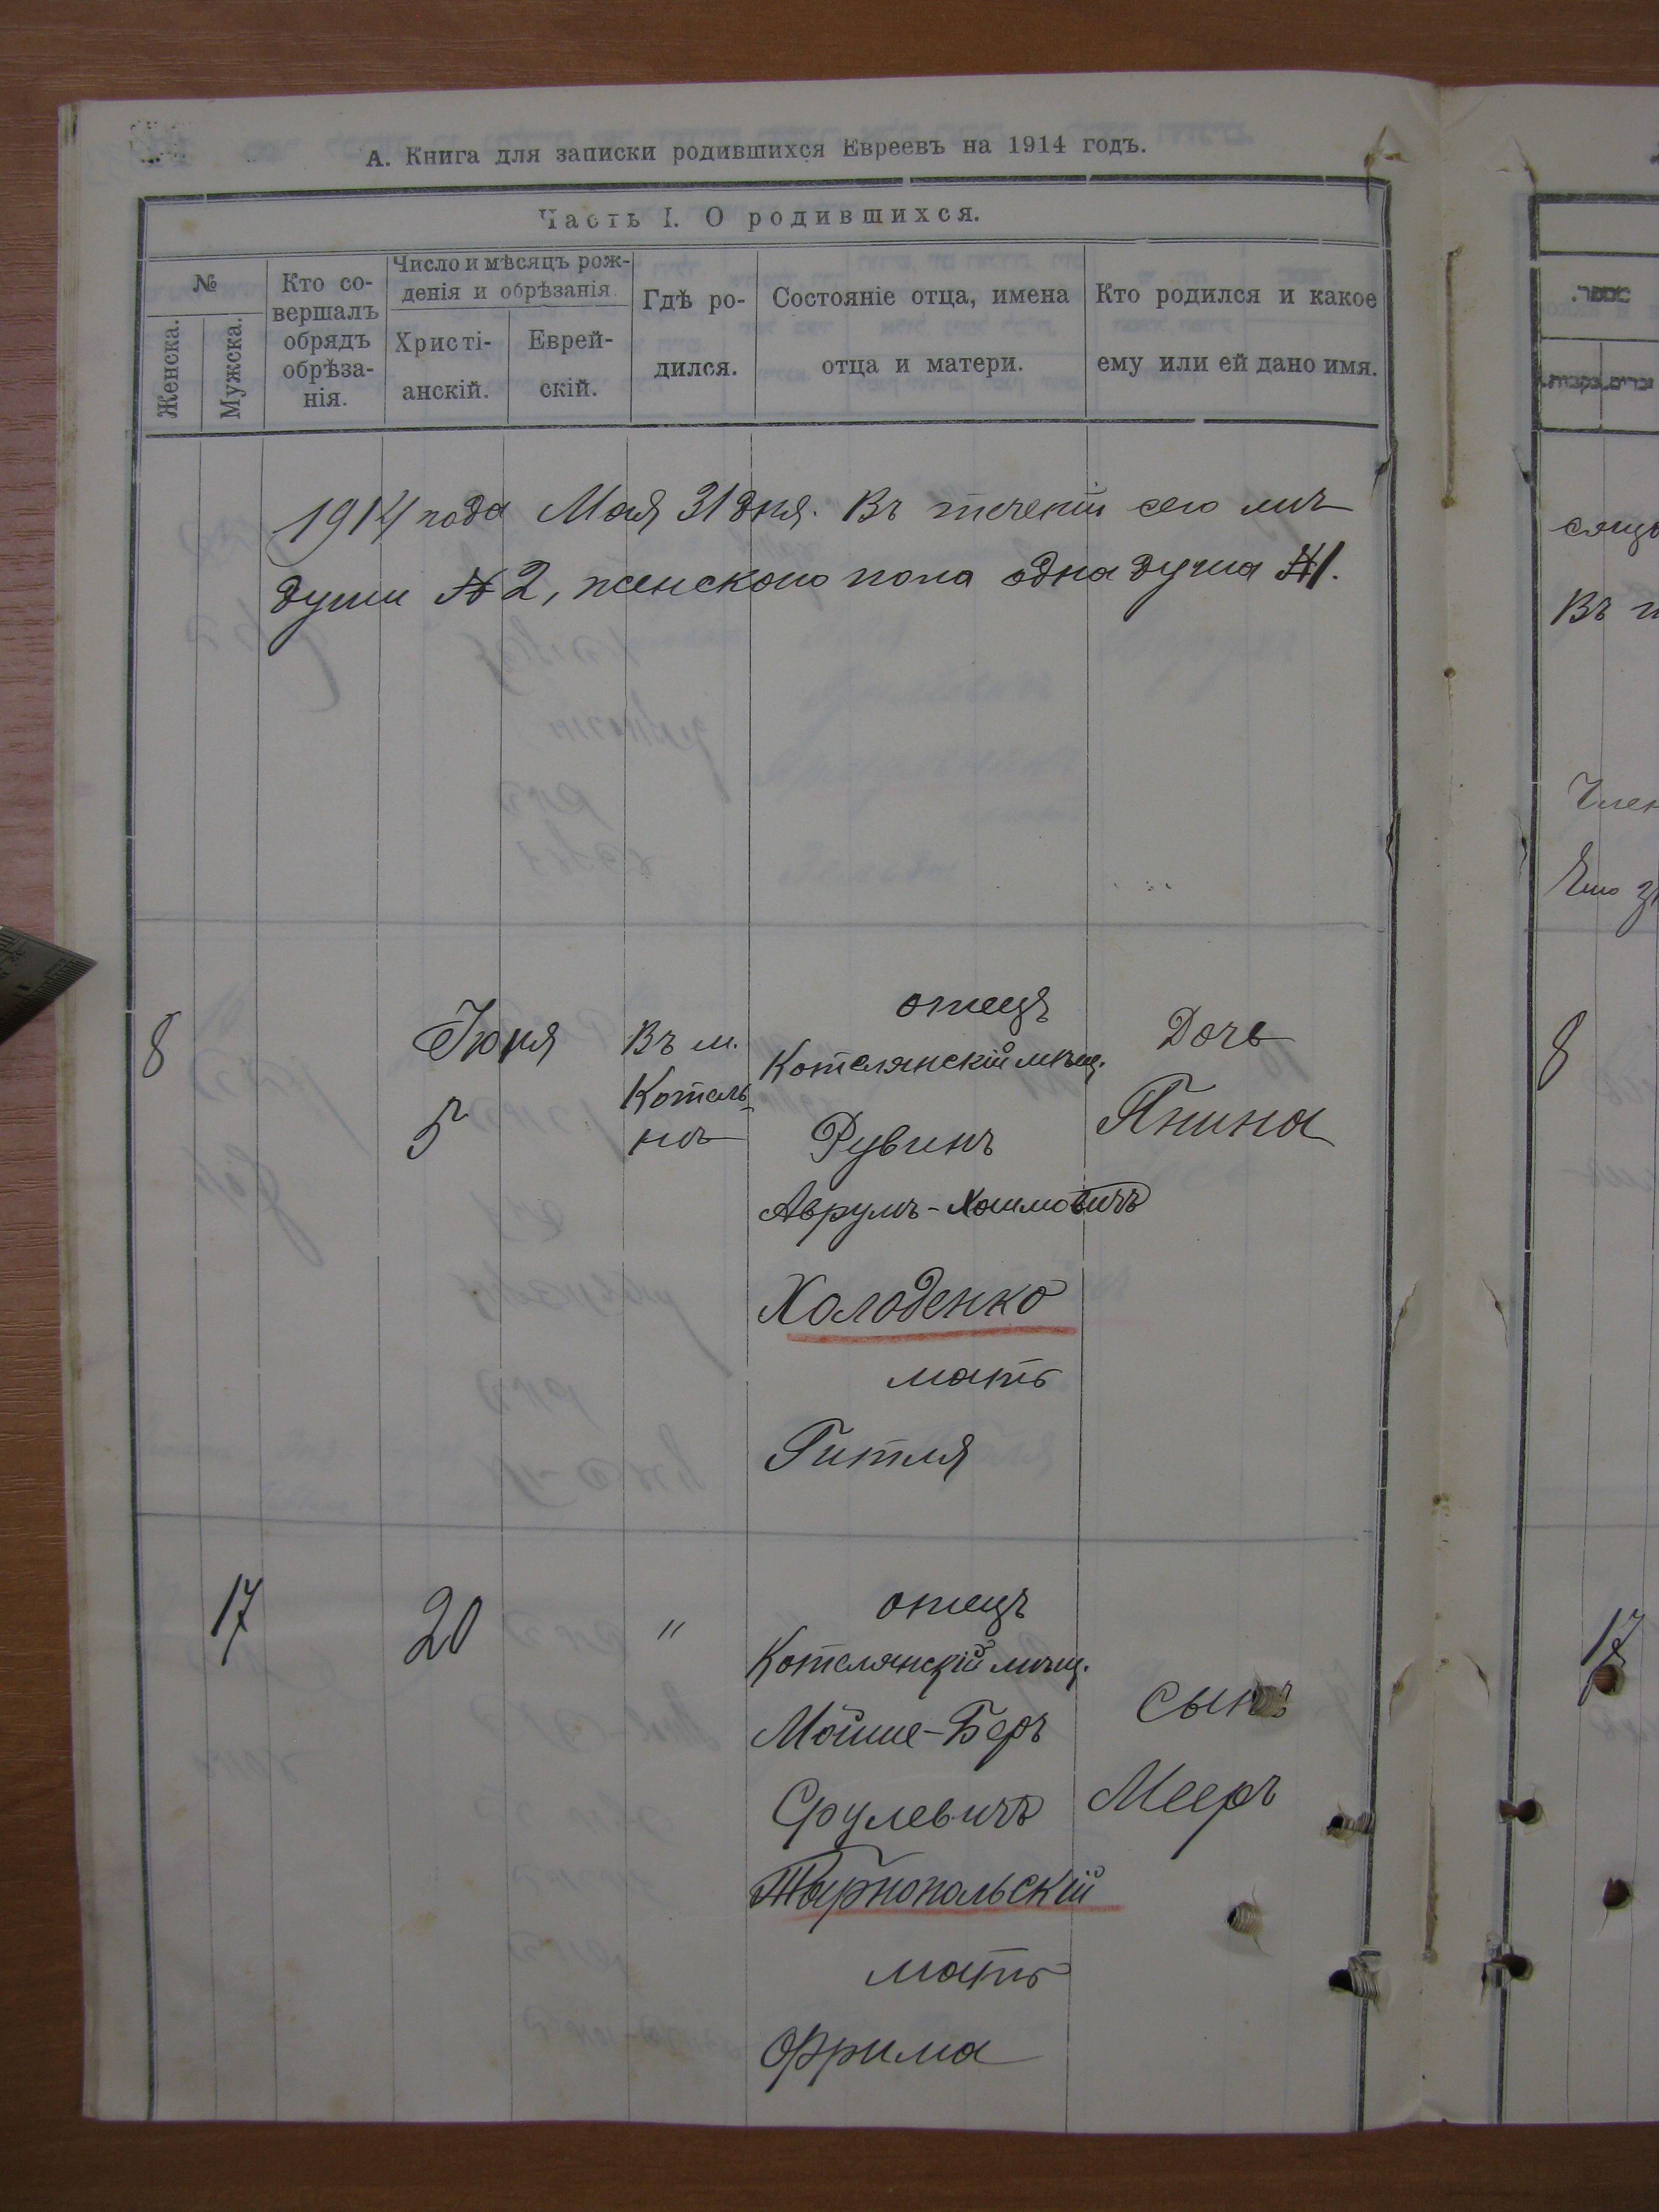 А. Книга для записки родившихся Евреевъ на 1914 годъ.
Часть I. О родившихся.
№
Женска.
Мужска.
Кто со-
вершалъ
обрядъ
обрѣза-
нія.
Число и мѣсяцъ рож-
денія и обрѣзанія.
Христі-
анскій.
Еврей-
скій.
Гдѣ ро-
дился.
Состояніе отца, имена
отца и матери.
Кто родился и какое
ему или ей дано имя.
1914 года Мая 31 дня. Въ теченіи сего мѣ
души № 2, женскаго пола одна душа №1.
8
Іюня
5
Въ м.
Котель-
нѣ
отецъ
Котелянскій мѣщ.
Рувинъ
Аврумъ-Хаимовичъ
Холоденко
мать
Гитля
Дочь
Янина
17
20
"
отецъ
Котелянскій мѣщ.
Мойше-Беръ
Срулевичъ
Тырнопольскій
мать
Фрима
сынъ
Мееръ
מספר.
זכרים.
נקבות.
сяцъ
Въ
Член
8
17